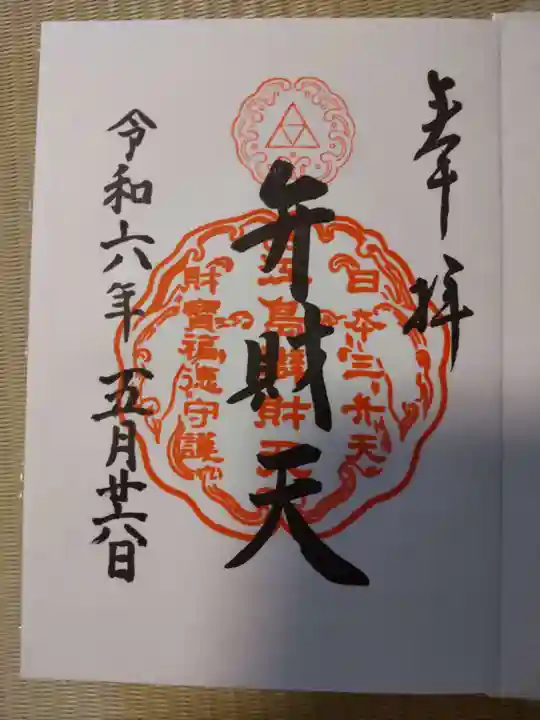 奉拝
日本三弁天
弁財天
江島辨財天
財寳福徳守護
令和六年 五月廿六日